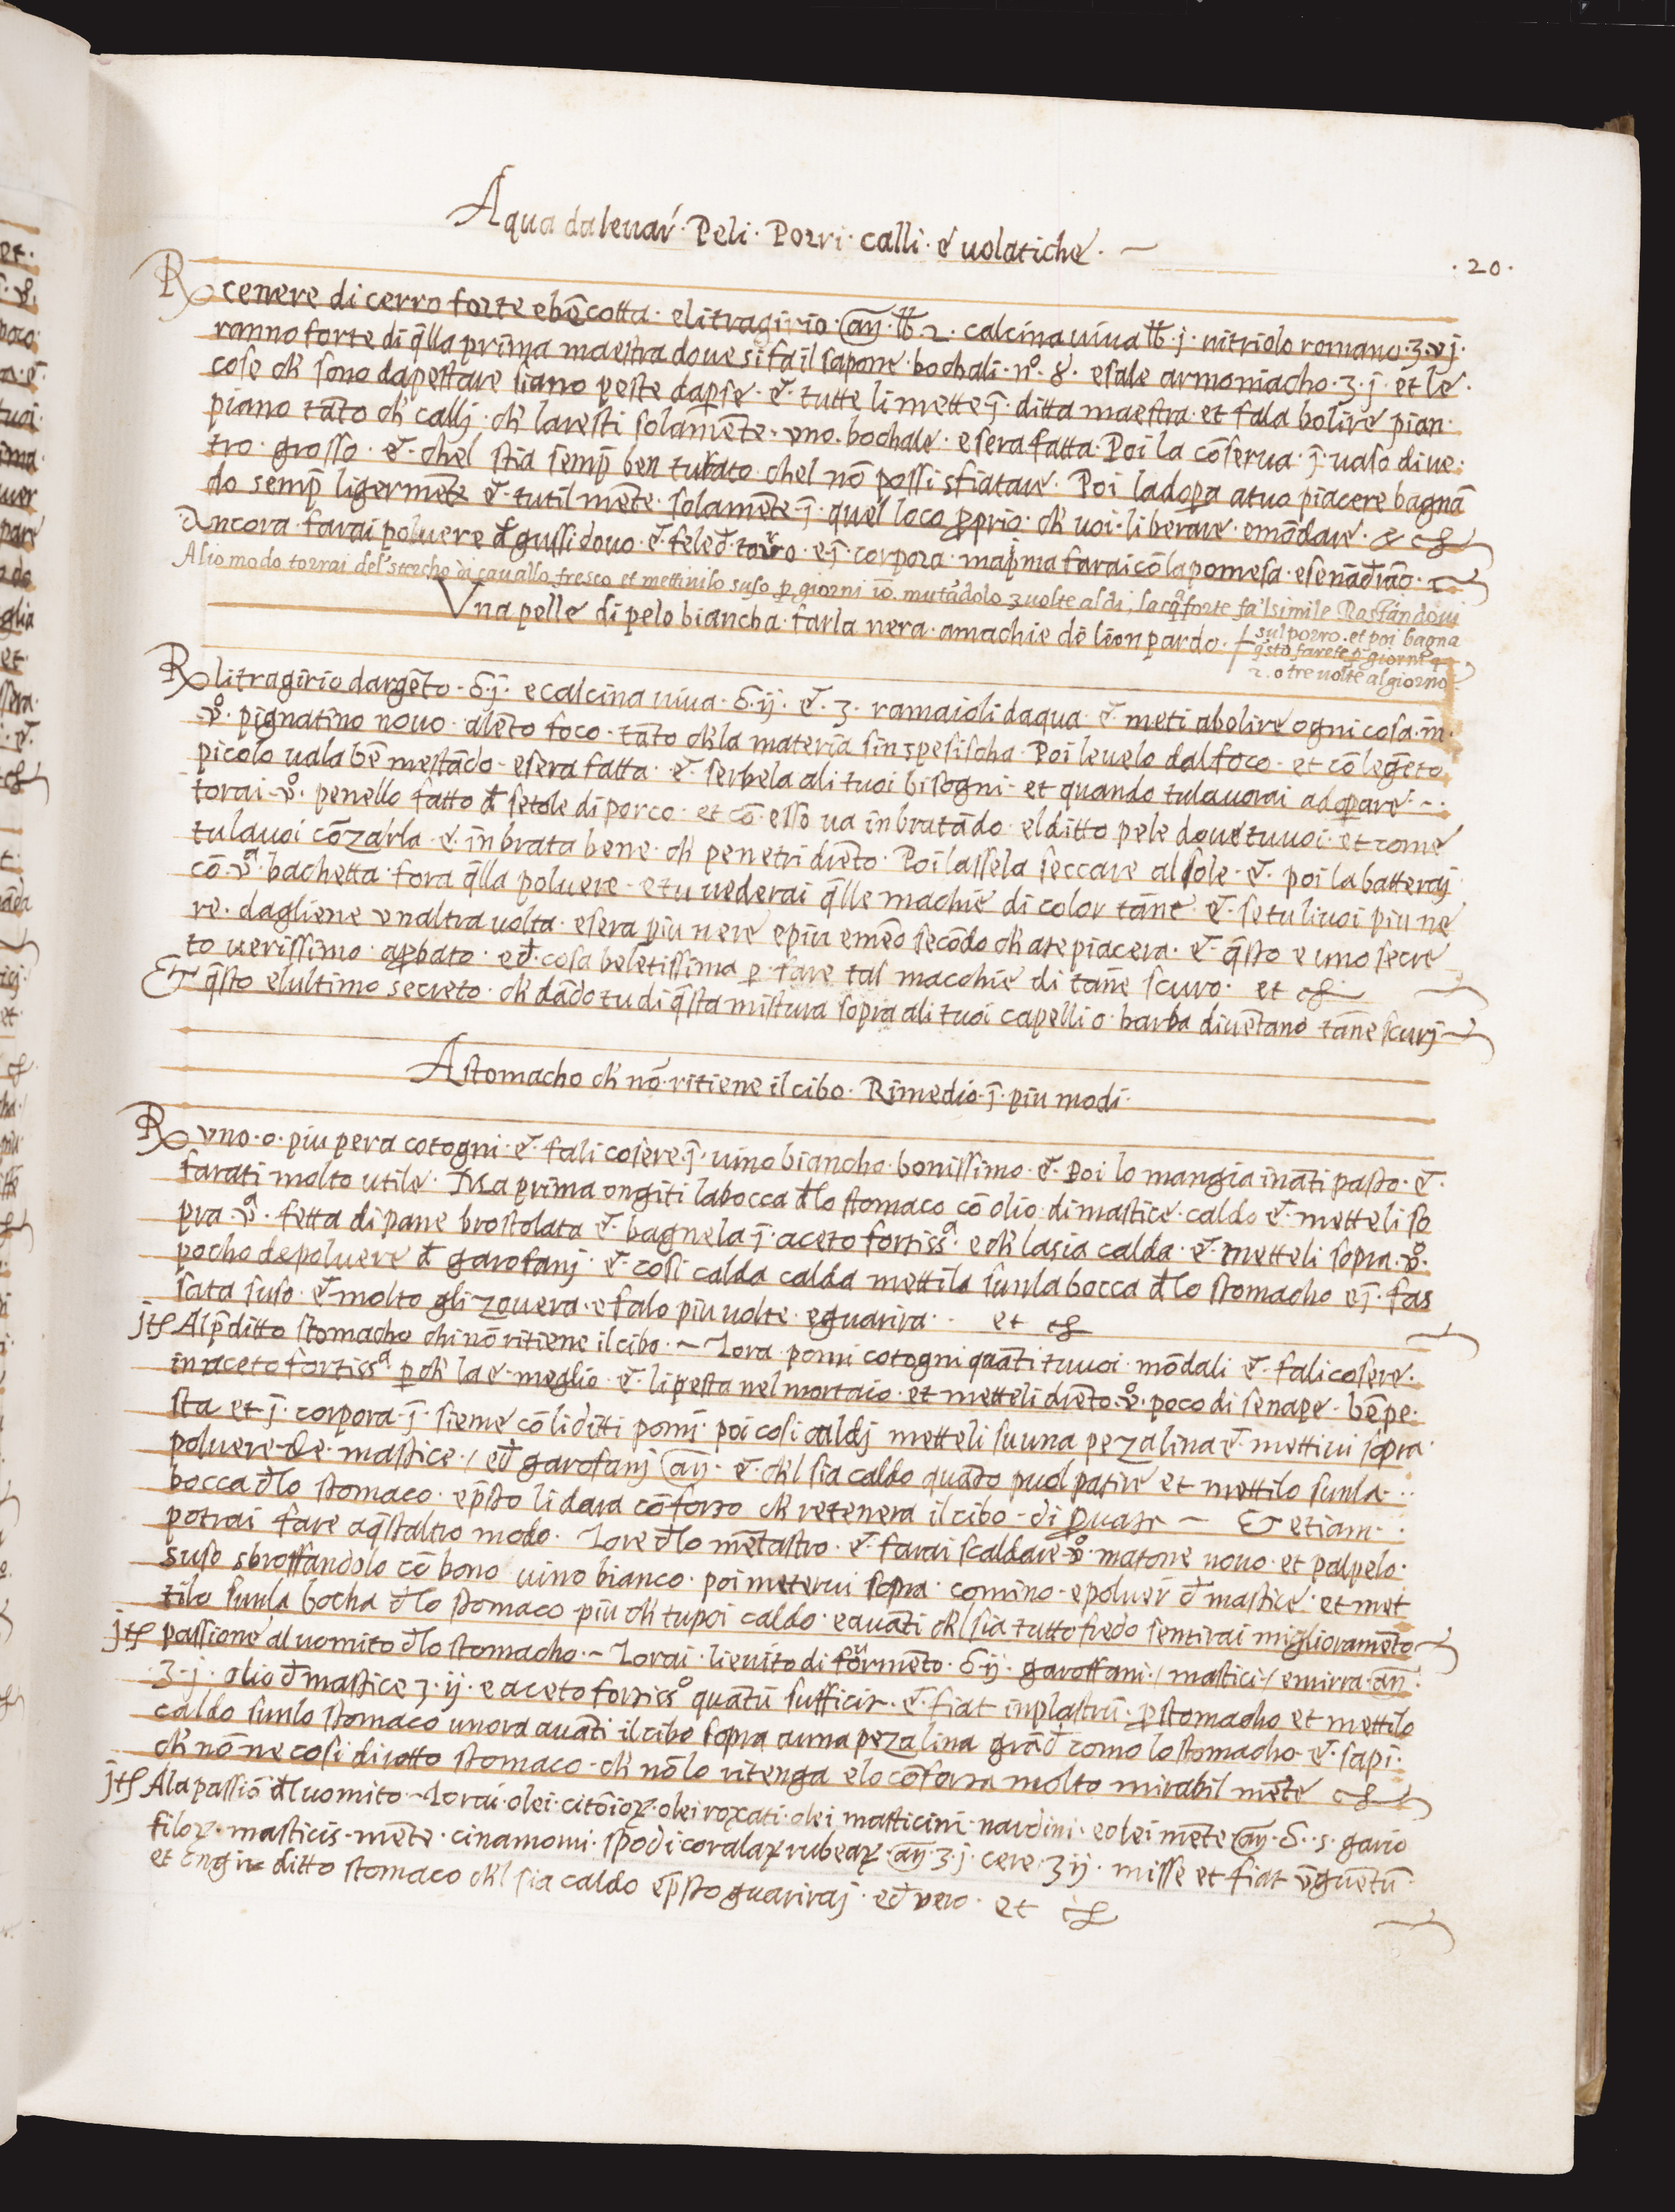 Aqua da leuar̃ · Peli · Porri · calli · e uolatiche ·
· 20 ·
R cenere di cerro forte e bẽ cotta · e litragirio · añ · ℔ · 2 · calcina uiua ℔ · j · uitriolo romano · ʒ · vj ·
ranno forte di q̃lla prima maestra doue si fa il sapone · bochali · nº · 8 · e sale armoniacho · ʒ · j · et le ·
cose ch̃ sono da pestare siano peste da p se · e · tutte li mette ĩ · ditta maestra · et fala bolire pian ·
piano tãto ch̃ callj · ch̃ laresti solamẽte · uno · bochale · e sera fatta · Poi la cõserua · ĩ · uaso di ue ·
tro · grosso · e · chel stia semp̃ ben turato · chel nõ possi sfiatare · Poi ladopa a tuo piacere bagnã
do semp̃ ligermẽte e · tutilmẽte · solamẽte · ĩ · quel loco pprio · ch̃ uoi · liberare · e mõdare · &
Ancora · farai poluere đ gussi douo · e · fele đ · toro · e · ĩ · corpora · ma prima farai cõ la pomesa · e senãdrão ·
Alio modo torrai del stercho di cauallo fresco et mettinilo suso p giorni 10 · mutãdolo 3 uolte al di, lacq̃ forte fa'l simile Rastandoui
sul porro · et poi bagna
q̃sto farete p giorni 4
2 · o tre uolte al giorno
Vna pelle di pelo biancha · farla nera · a machie de lionpardo ·
R litragirio dargẽto · δ · j · e calcina uiua · δ · ij · e · 3 · ramaioli daqua · e · meti a bolire ogni cosa · in ·
uº · pignatino nouo · a lẽto foco · tãto ch̃ la materia sinspesischa · Poi leuelo dal foco · et cõ legẽto
picolo uala bẽ mestãdo · e sera fatta · e · serbela ali tuoi bisogni · et quando tu la uorai adopare ·
torai · uº · penello fatto đ setole di porco · et cõ · esso ua inbratãdo · el ditto pele doue tu uoi · et come
tu la uoi cõzarla · e · inbrata bene · ch̃ penetri drẽto · Poi lassela seccare al sole · e · poi la batteraj
cõ · uª · bachetta · fora q̃lla poluere · e tu uederai q̃lle machie di color tãne · e · se tu li uoi piu ne
re · dagliene unaltra uolta · e sera piu nere e piu e meno secõdo ch̃ a te piacera · e · q̃sto e uno secre
to uerissimo · apbato · e đ · cosa beletissima p · fare tal macchie di tãne scuro · et
Et q̃sto e lultimo secreto · ch̃ dãdo tu di q̃sta mistura sopra ali tuoi capelli o · barba diuẽtano tãne scurj
A stomacho ch̃ nõ · ritiene il cibo · Rimedio · ĩ · piu modi ·
R uno · o · piu pera cotogni · e · fali cosere · ĩ · uino biancho · bonissimo · e · Poi lo mangia inãti pasto · e ·
farati molto utile · Ma prima ongiti la bocca đlo stomaco cõ olio · di mastice · caldo e · metteli so
pra · uª · fetta di pane brostolata e · bagnela ĩ · aceto fortissª · e ch̃ la sia calda · e · metteli sopra · uº ·
pocho de poluere đ garofanj · e · cosi calda calda mettila sunla bocca đlo stomacho e ĩ · fas
sata suso · e molto gli zouera · e falo piu uolte · e guarira · et
jtẽ Al p̃ditto stomacho ch̃ nõ ritiene il cibo · Tora · pomi cotogni quãti tu uoi · mõdali e · fali cosere ·
in aceto fortissª · p ch̃ la e · meglio · e · li pesta nel mortaio · et metteli drẽto · uº · poco di senape · bẽ pe ·
sta et ĩ · corpora · ĩ · sieme cõ li ditti pomj · poi cosi caldj metteli su una peza lina e · mettiui sopra ·
poluere · de · mastice · / e đ garofanj añ · e · ch̃l sia caldo quãto puol patire et mettilo sunla ·
bocca đlo stomaco · e p̃sto li dara cõforto ch̃ retenera il cibo · di puatr · Et etiam ·
potrai fare a q̃staltro modo · Tore đlo mẽtastro · e · farai scaldare · uº · matone nouo · et palpelo ·
suso sbroffandolo cõ bono uino bianco · poi meterui sopra · comino · e poluer̃ đ mastice · et met
tilo sunla bocha đlo stomaco piu ch̃ tu poi caldo · e auãti ch̃l sia tutto fredo sentirai miglioramẽto
jtẽ passione al uomito đlo stomacho · Torai · lieuito di formẽto · δ · ij · garoffani · / mastici · / e mirra · añ ·
ʒ · j · olio đ mastice ʒ · ij · e aceto fortissº quãtũ sufficit · e · fiat inplastrũ · p stomacho et mettilo
caldo sunlo stomaco unora auãti il cibo sopra a una peza lina grãđ como lo stomacho · e · sapi ·
ch̃ nõ ne cosi dirotto stomaco · ch̃ nõ lo ritenga e lo cõforta molto mirabil mẽte
jtẽ A la passiõ đl uomito · Torai · olei · citõioꝝ · olei roxati · olei masticini · nardini · e olei mẽte añ · δ · s · gario
filoꝝ · masticis · mẽte · cinamomi · spodi coralaꝝ rubeaꝝ · añ ʒ · j · cere · ʒ ij · misse et fiat ũguẽtũ ·
et ongi ditto stomaco ch̃l sia caldo e p̃sto guariraj · e đ vero · et